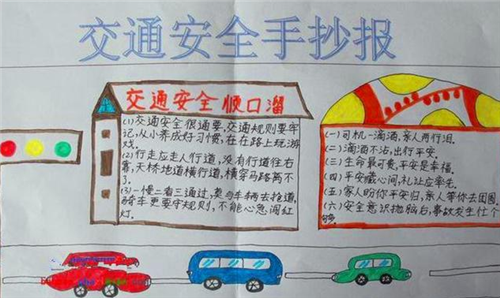 交通安全手抄报
交通安全顺口溜
(1)交通安全很重要,交通规则要牢
记,从小养成好习惯,在在路上玩游
戏。
(2)行走应走人行道,没有行道往右
靠,天桥地道横行道,横穿马路离不
了。
(3)一慢二看三通过,莫与车辆去抢道,
骑车更要守规则,不能心急闯红
灯。
(一)司机一滴酒,亲人两行泪。
(二)滴酒不沾,出行平安。
(三)生命最可贵,平安是幸福。
(四)平安藏心间,礼让应率先。
(五)家人盼你平安归,亲人等你去团圆
(六)安全意识抛脑右,事故发生忙了